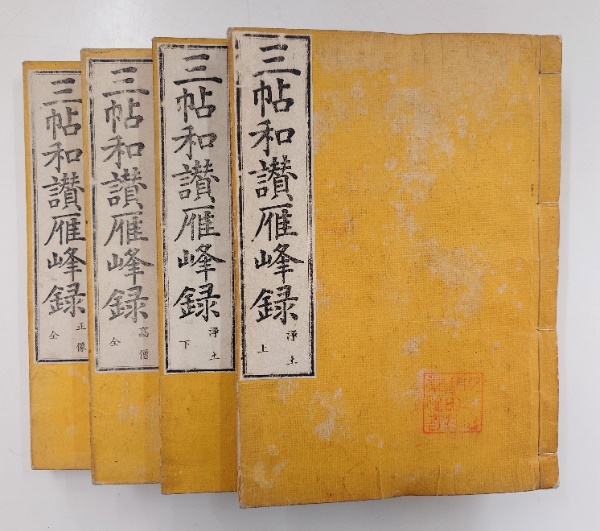 三帖和讃雁峰録
浄土
上
三帖和讃雁峰録
浄土
下
三帖和讃雁峰録
高僧
全
三帖和讃雁峰録
正像
全